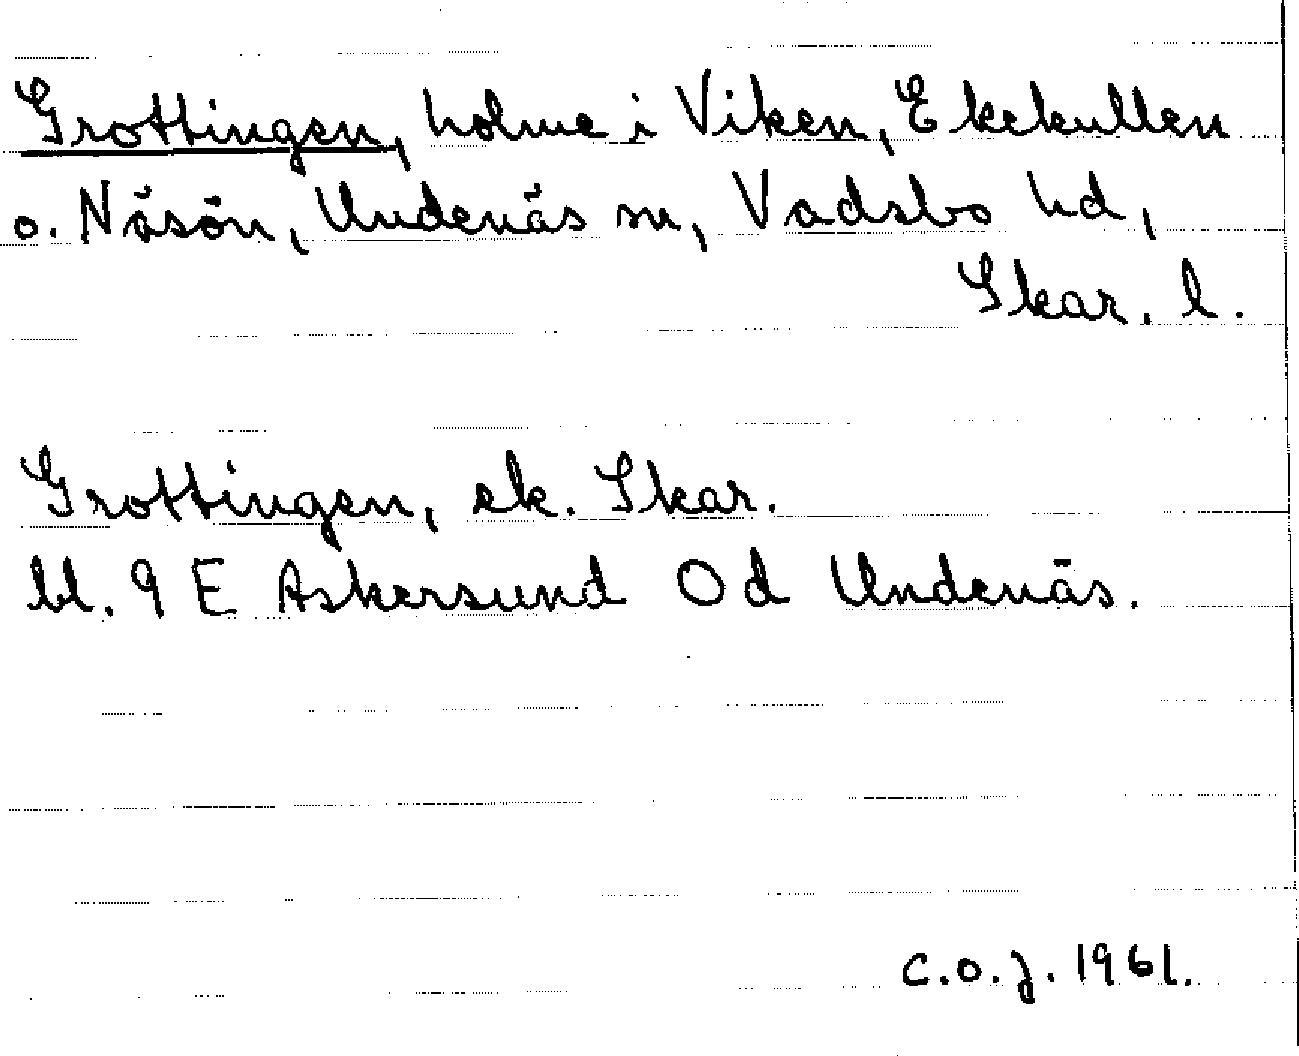 Grottingen, holme i Viken, Ekekullen
o. Näsön, Undenäs sn, Vadsbo hd,
Skar. l.
Grottingen, ek. Skar.
bl. 9 E Askersund Od Undenäs.
C.O.J. 1961.